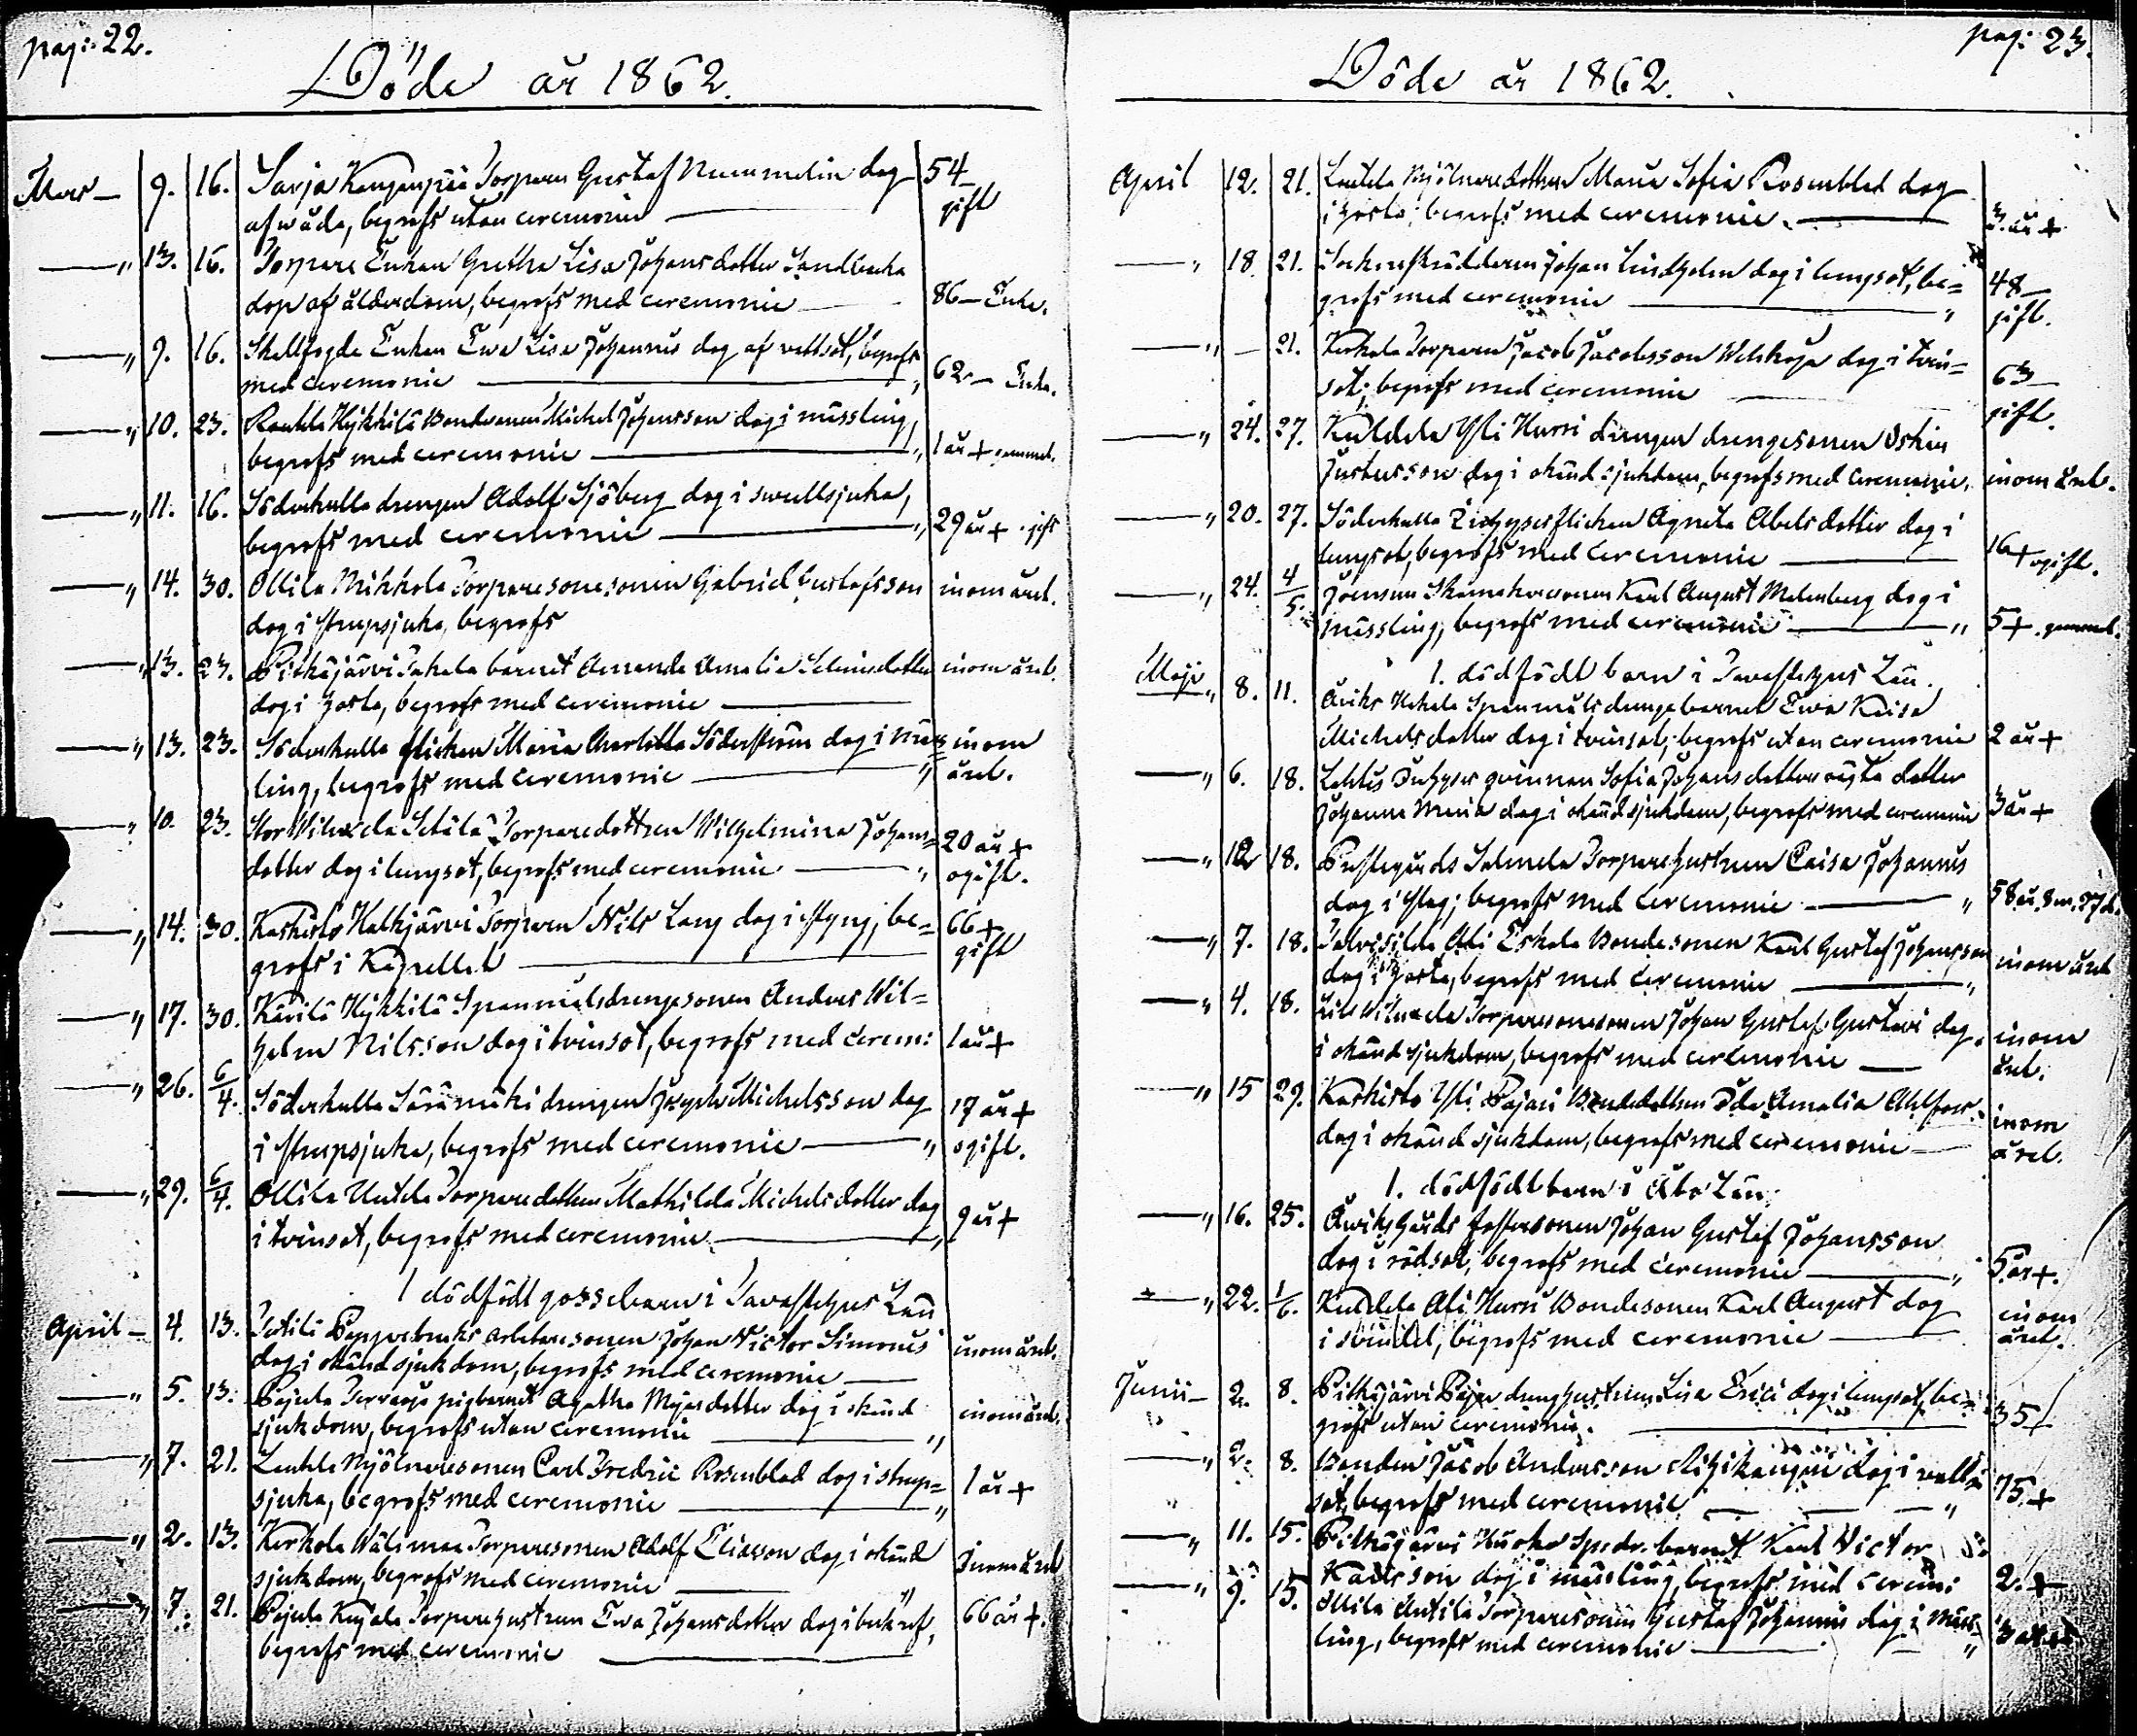 pag: 22.
Döde år 1862.
Mars — 9. 16. Sarja Kangenpää Torparen Gustaf Nummelin dog 54
af wåda, begrofs utan ceremonie — gift
— " 13. 16. Torpare Enkan Gretha Lisa Johansdotter Sandbacka
dog af ålderdom, begrofs med ceremonie — 86 — Enka.
— " 9. 16. Skallfogde Enkan Ewa Lisa Johannis dog af vattsot, begrofs
med ceremonie — " 62 — Enka.
— " 10. 23. Hykkilä Bondesonen Michel Johansson dog i mässling,
begrofs med ceremonie — " 1 år + gammal.
— " 11. 16. Söderkulla drengen Adolf Sjöberg dog i swullsjuka,
begrofs med ceremonie — " 29 år +
— " 14. 30. Ollila Mikkola Torparesonesonen Gabriel Gustafsson inom året.
dog i strupsjuka, begrofs
— " 13. 23. Pitkäjärvi barnet Amanda Amalia inom året.
dog i hosta, begrofs med ceremonie —
— " 13. 23. Söderkulla flickan Maria Charlotta Söderström dog i mäss= inom
ling, begrofs med ceremonie — " året.
— " 10. 23. Stor Wilwada Torparedottren Wilhelmina Johans= 20 år +
dotter dog i lungsot, begrofs med ceremonie — " ogift.
— " 14. 30. Kaskisto Kalkjärvi Torparen Nils Lang dog i styng, be= 66 +
grofs i Kapellet — gift
— " 17. 30. Kärilä Hykkilä Spanmålsdrengesonen Anders Wil=
helm Nilsson dog i tvinsot, begrofs med cerem: 1 år +
— " 26. 6/4. Söderkulla Säämäki drengen Michelsson dog 17 år +
i strupsjuka, begrofs med ceremonie — " ogift.
— " 29. 6/4. Ollila Torparedottren Mathilda Michelsdotter dog
i tvinsot, begrofs med ceremonie. — " 9 år +
1 dödfödt gossebarn i Tavastehus Län
April — 4. 13. Pappersbruks arbetaresonen Johan Victor Simonis
dog i okänd sjukdom, begrofs med ceremonie — inom året.
— " 5. 13. Pajula pigbarnet Agatha dog i okänd
sjukdom, begrofs utan ceremonie — " inom året.
— " 7. 21. Mjölnaresonen Carl Fredric Rosenblad dog i strup=
sjuka, begrofs med ceremonie — " 1 år +
— " 2. 13. Kerkola Wälimaa Torparesonen Adolf Eliasson dog i okänd
sjukdom, begrofs med ceremonie — inom året
— " 7. 21. Pajula Torparehustrun Ewa Johansdotter dog i
begrofs med ceremonie — 66 år +.
pag: 23.
Döde år 1862.
April 12. 21. Mjölnaredottren Maria Sofia Rosenblad dog
i hosta; begrofs med ceremonie. — 3. år +
— " 18. 21. Sockneskräddaren Johan Lindholm dog i lungsot, be= 48 —
grofs med ceremonie — " gift.
— " — 21. Kerkola Torparen Jacob Jacobsson dog i tvin=
sot; begrofs med ceremonie — 63 — gift.
— " 24. 27. Yli Hurri drengen drengesonen Oskar
Justusson dog i okänd sjukdom, begrofs med ceremonie, inom året.
— " 20. 27. Söderkulla flickan Agneta Abelsdotter dog i
lungsot, begrofs med ceremonie — 16 + ogift.
— " 24. 4/5. Joensuu Skomakaresonen Karl August Malmberg dog i
mässling, begrofs med ceremonie — " 5 + gammal.
1. dödfödt barn i Tavastehus Län.
Maji " 8. 11. Spanmålsdrengebarnet Ewa Kaisa
Michelsdotter dog i tvinsot; begrofs utan ceremonie 2 år +
— " 6. 18. qvinnan Sofia Johansdotters oägta dotter
Johanna Maria dog i okänd sjukdom, begrofs med ceremonie 3 år +
— " 12 18. Prestegårds Torparehustrun Caisa Johannis
dog i slag; begrofs med ceremonie — " 58 år, 8 m. 27 d.
— " 7. 18. Eskola Bondesonen Karl Gustaf Johansson inom året
dog i hosta, begrofs med ceremonie — "
— " 4. 18. Torparesonesonen Johan Gustaf Gustavi dog inom
i okänd sjukdom, begrofs med ceremonie — året.
— " 15 29. Kaskisto Yli Pajari Bondedottren Ida Amalia inom
dog i okänd sjukdom, begrofs med ceremonie — året.
1. dödfödt barn i Åbo Län.
— " 16. 25. gårds Johan Gustaf Johansson
dog i rödsot, begrofs med ceremonie — " 5 år +.
— " 22. 1/6. Ali Hurri Bondesonen Karl August dog inom
i svindel, begrofs med ceremonie — året.
Junii — 2. 8. Pitkäjärvi drenghustrun Lisa Erici dog i lungsot, be=
grofs utan ceremonie. — 35
— " 2. 8. Bonden Jacob Andersson dog i vatt=
sot, begrofs med ceremonie — " 75. +
— " 11. 15. Pitkäjärvi Spmdr. barnet Karl Victor
Karlsson dog i mässling, begrofs med cerem: 2. +
— " 9. 15. Ollila Antila Torparesonen Gustaf Johannis dog i mäss=
ling, begrofs med ceremonie — "